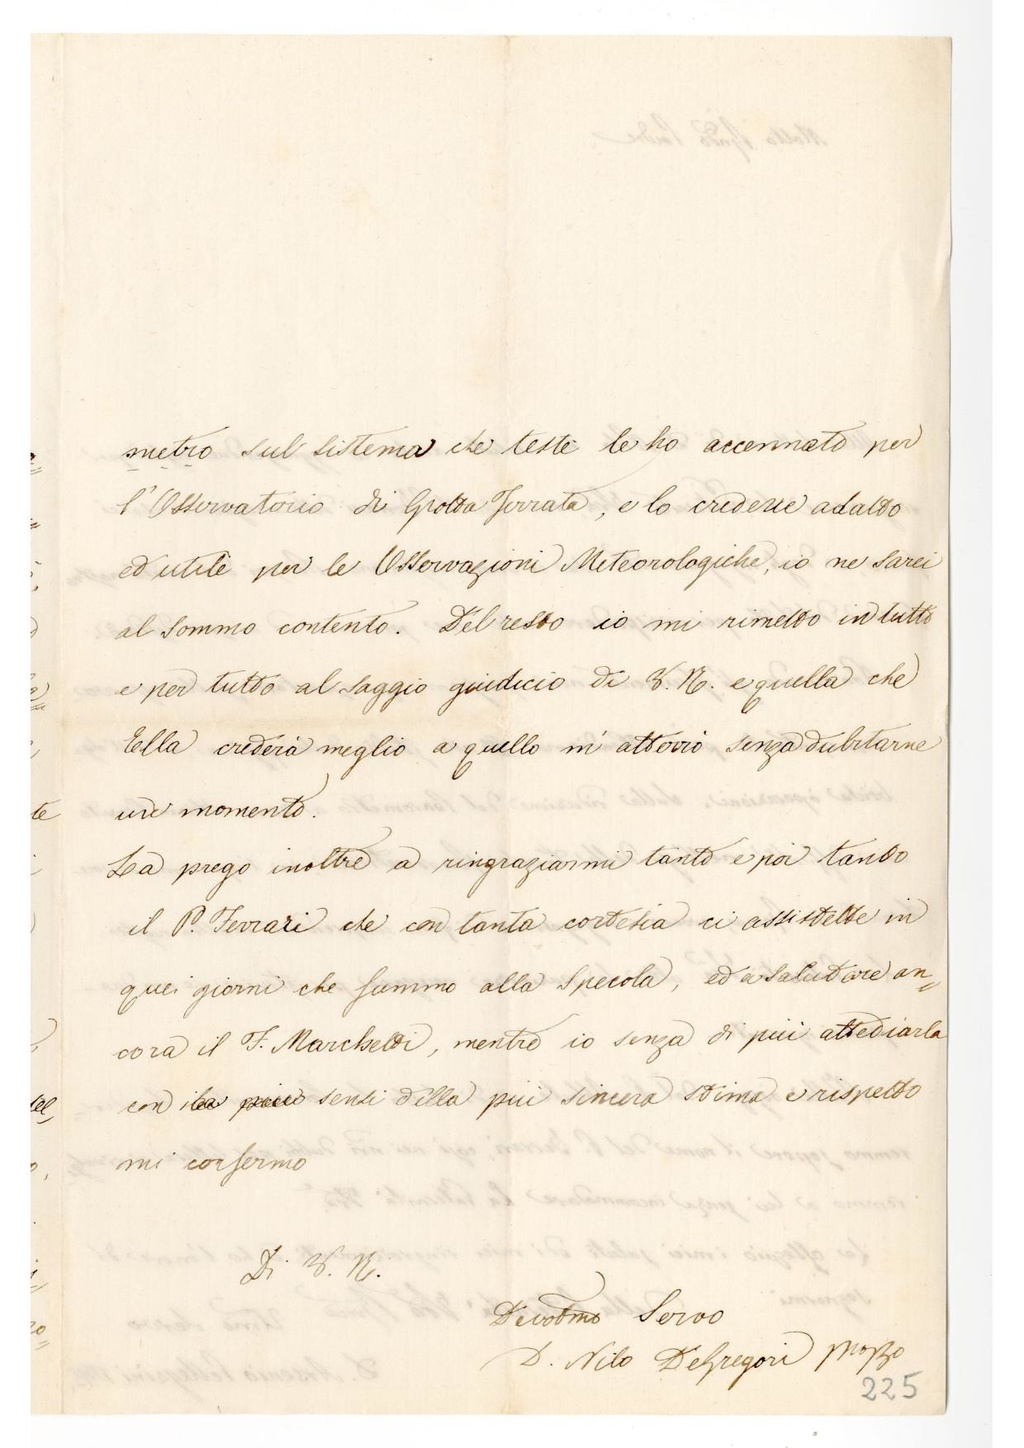 metro sul sistema che testè le ho accennato per
l'Osservatorio di Grotta Ferrata, e lo credesse adatto
ed utile per le Osservazioni Meteorologiche, io ne sarei
al sommo contento. Del resto io mi rimetto in tutto
e per tutto al saggio giudicio di V. R. e quella che
Ella crederà meglio a quello m'atterrò senza dubitarne
un momento.
La prego inoltre a ringraziarmi tanto e poi tanto
il P. Ferrari che con tanta cortesia ci assistette in
quei giorni che fummo alla Specola, ed a salutare an=
cora il F. Marchetti, mentre io senza di più attediarla
con i sensi della più sincera stima e rispetto
mi confermo
Di V. R.
Devotmo Servo
D. Nilo DeGregori
225